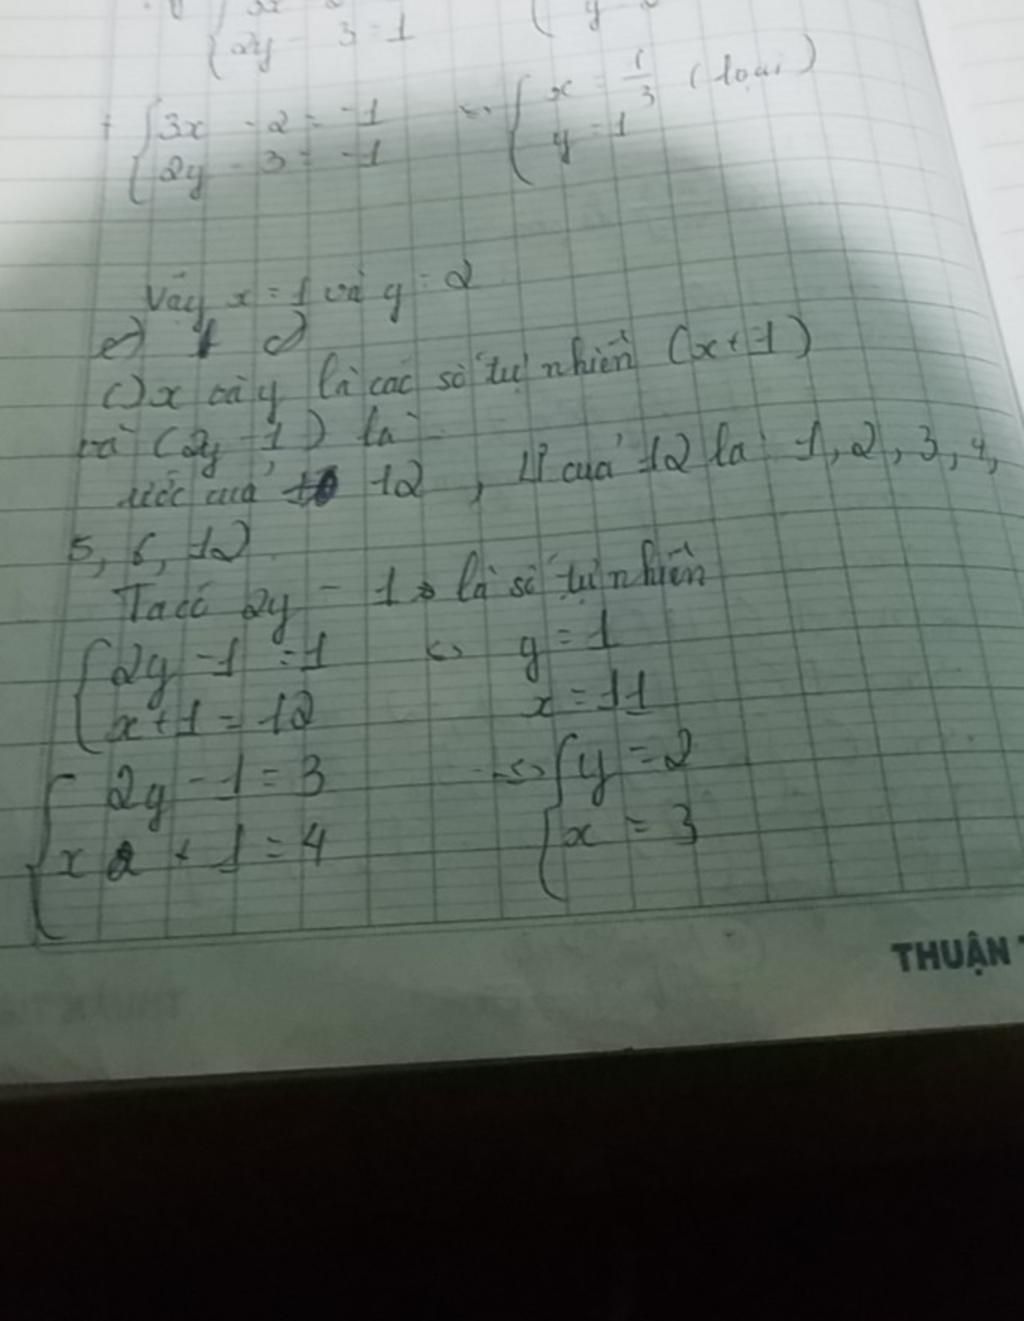 2y - 3 = 1
+ 3x - 2 = -1 <=> x = 1/3 (loại)
2y - 3 = -1 y = 1
Vậy x = 1 và y = 2
e) c)
c) x và y là các số tự nhiên (x + 1)
và (2y - 1) là
ước của 12, Ư của 12 là 1, 2, 3, 4,
5, 6, 12
Ta có 2y - 1 là số tự nhiên
2y - 1 = 1 <=> y = 1
x + 1 = 12 x = 11
2y - 1 = 3 <=> y = 2
x + 1 = 4 x = 3
THUẬN